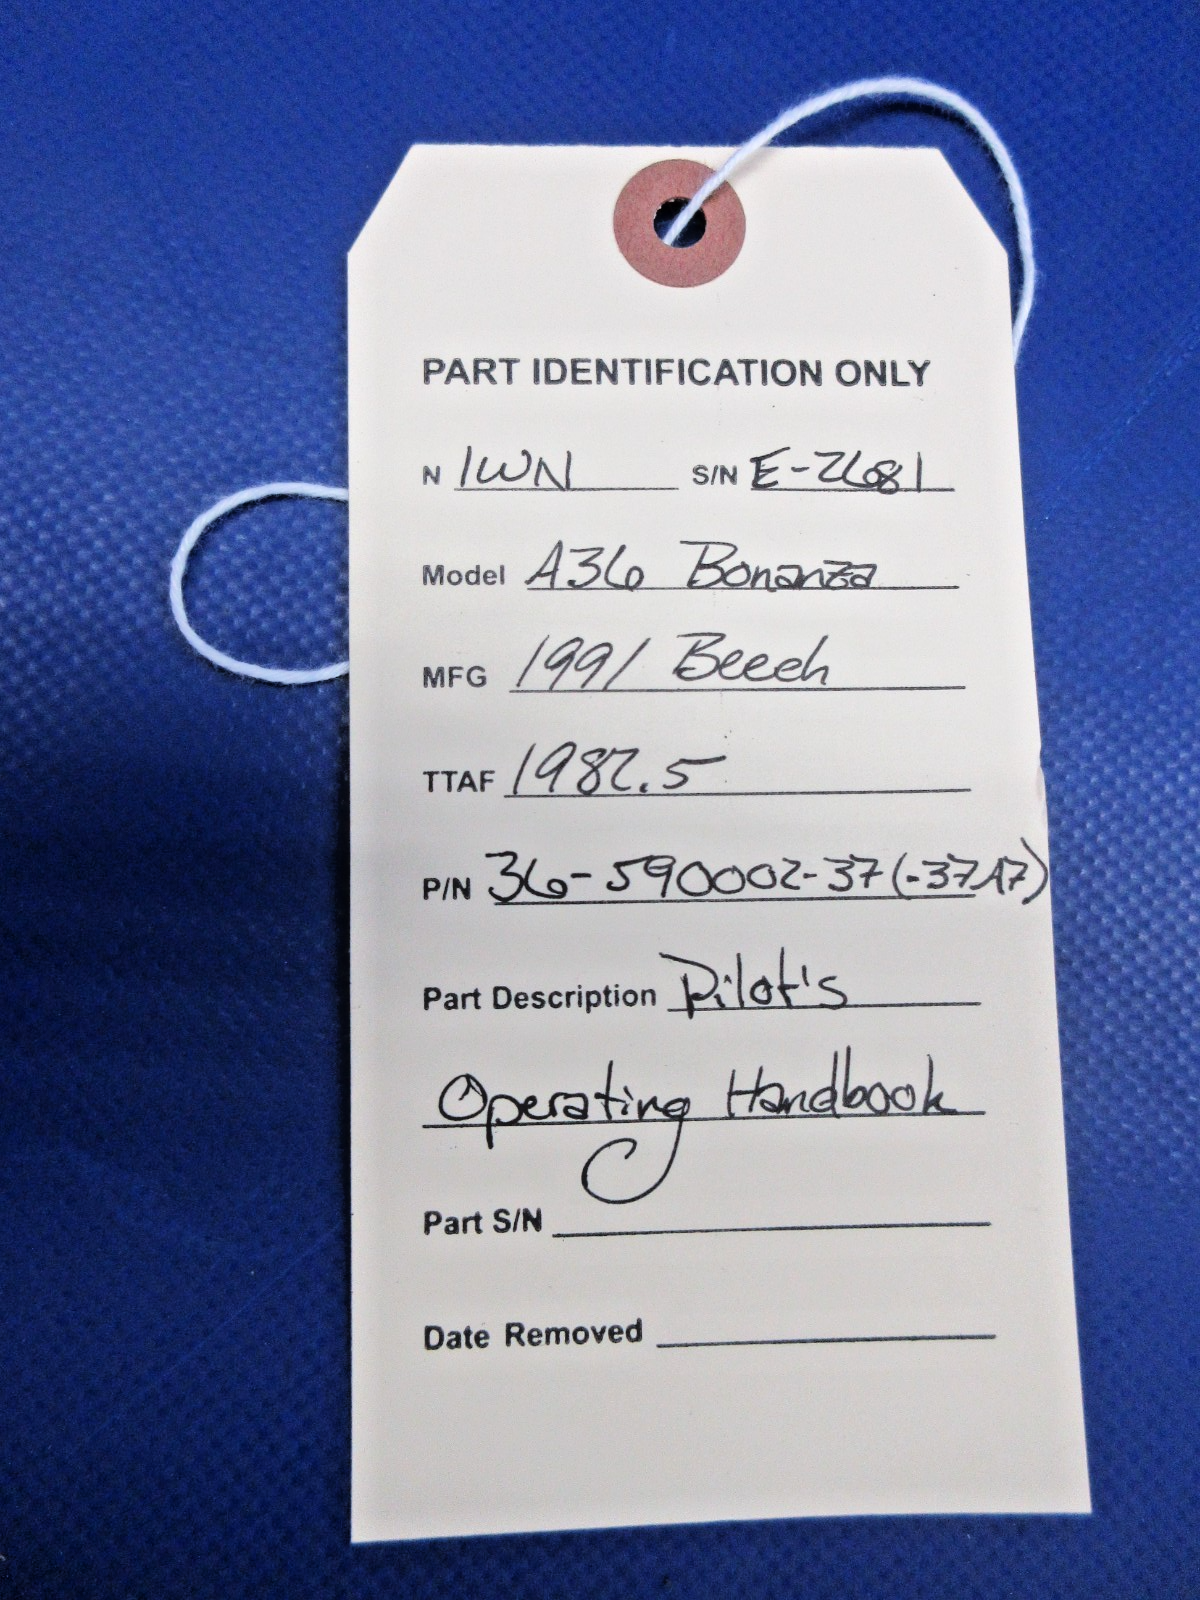 PART IDENTIFICATION ONLY
N 1WN S/N E-2681
Model A36 Bonanza
MFG 1991 Beech
TTAF 1982.5
P/N 36-590002-37 (-37A7)
Part Description Pilot's
Operating Handbook
Part S/N
Date Removed